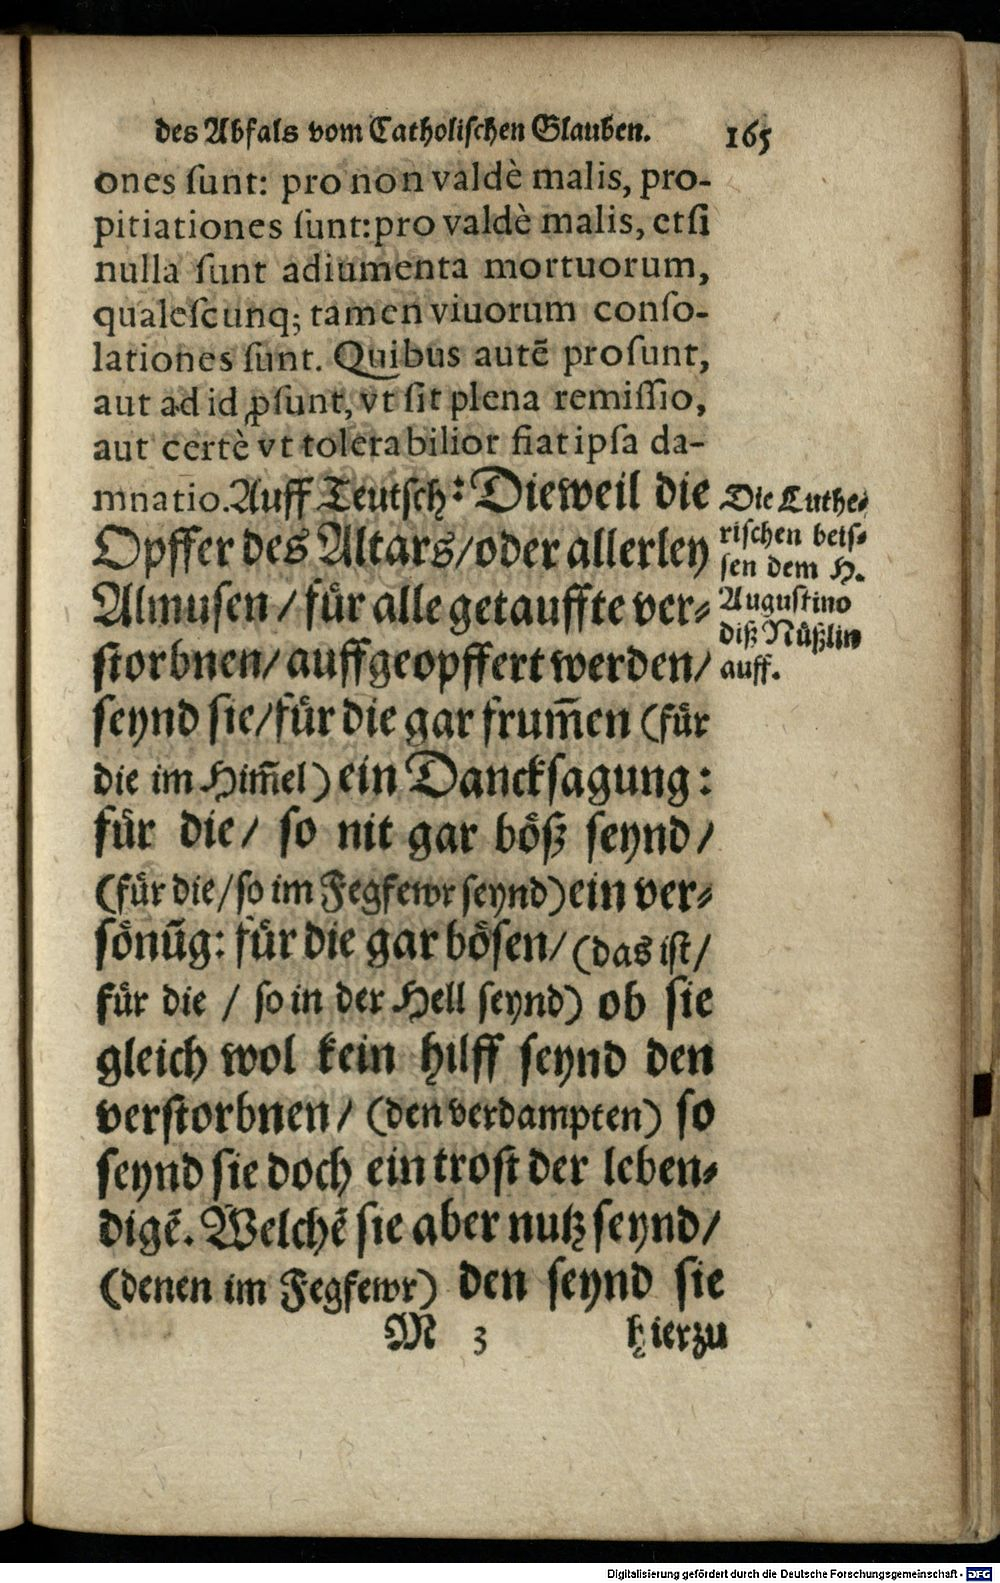 des Abfals vom Catholischen Glauben. 165
ones sunt: pro non valdè malis, pro-
pitiationes sunt: pro valdè malis, etsi
nulla sunt adiumenta mortuorum,
qualescunq; tamen viuorum conso-
lationes sunt. Quibus autē prosunt,
aut ad id ꝓsunt, vt sit plena remissio,
aut certè vt tolerabilior fiat ipsa da-
mnatio. Auff Teutsch: Dieweil die
Opffer des Altars/ oder allerley
Almusen / für alle getauffte ver-
storbnen/ auffgeopffert werden/
seynd sie/ für die gar frum̄en (für
die im Him̄el) ein Dancksagung:
für die/ so nit gar böß seynd/
(für die/ so im Fegfewr seynd) ein ver-
sönūg: für die gar bösen/ (das ist/
für die / so in der Hell seynd) ob sie
gleich wol kein hilff seynd den
verstorbnen/ (den verdampten) so
seynd sie doch ein trost der leben-
digē. Welchē sie aber nutz seynd/
(denen im Fegfewr) den seynd sie
M 3 hierzu
Die Luthe-
rischen beis-
sen dem H.
Augustino
diß Nüßlin
auff.
Digitalisierung gefördert durch die Deutsche Forschungsgemeinschaft - DFG